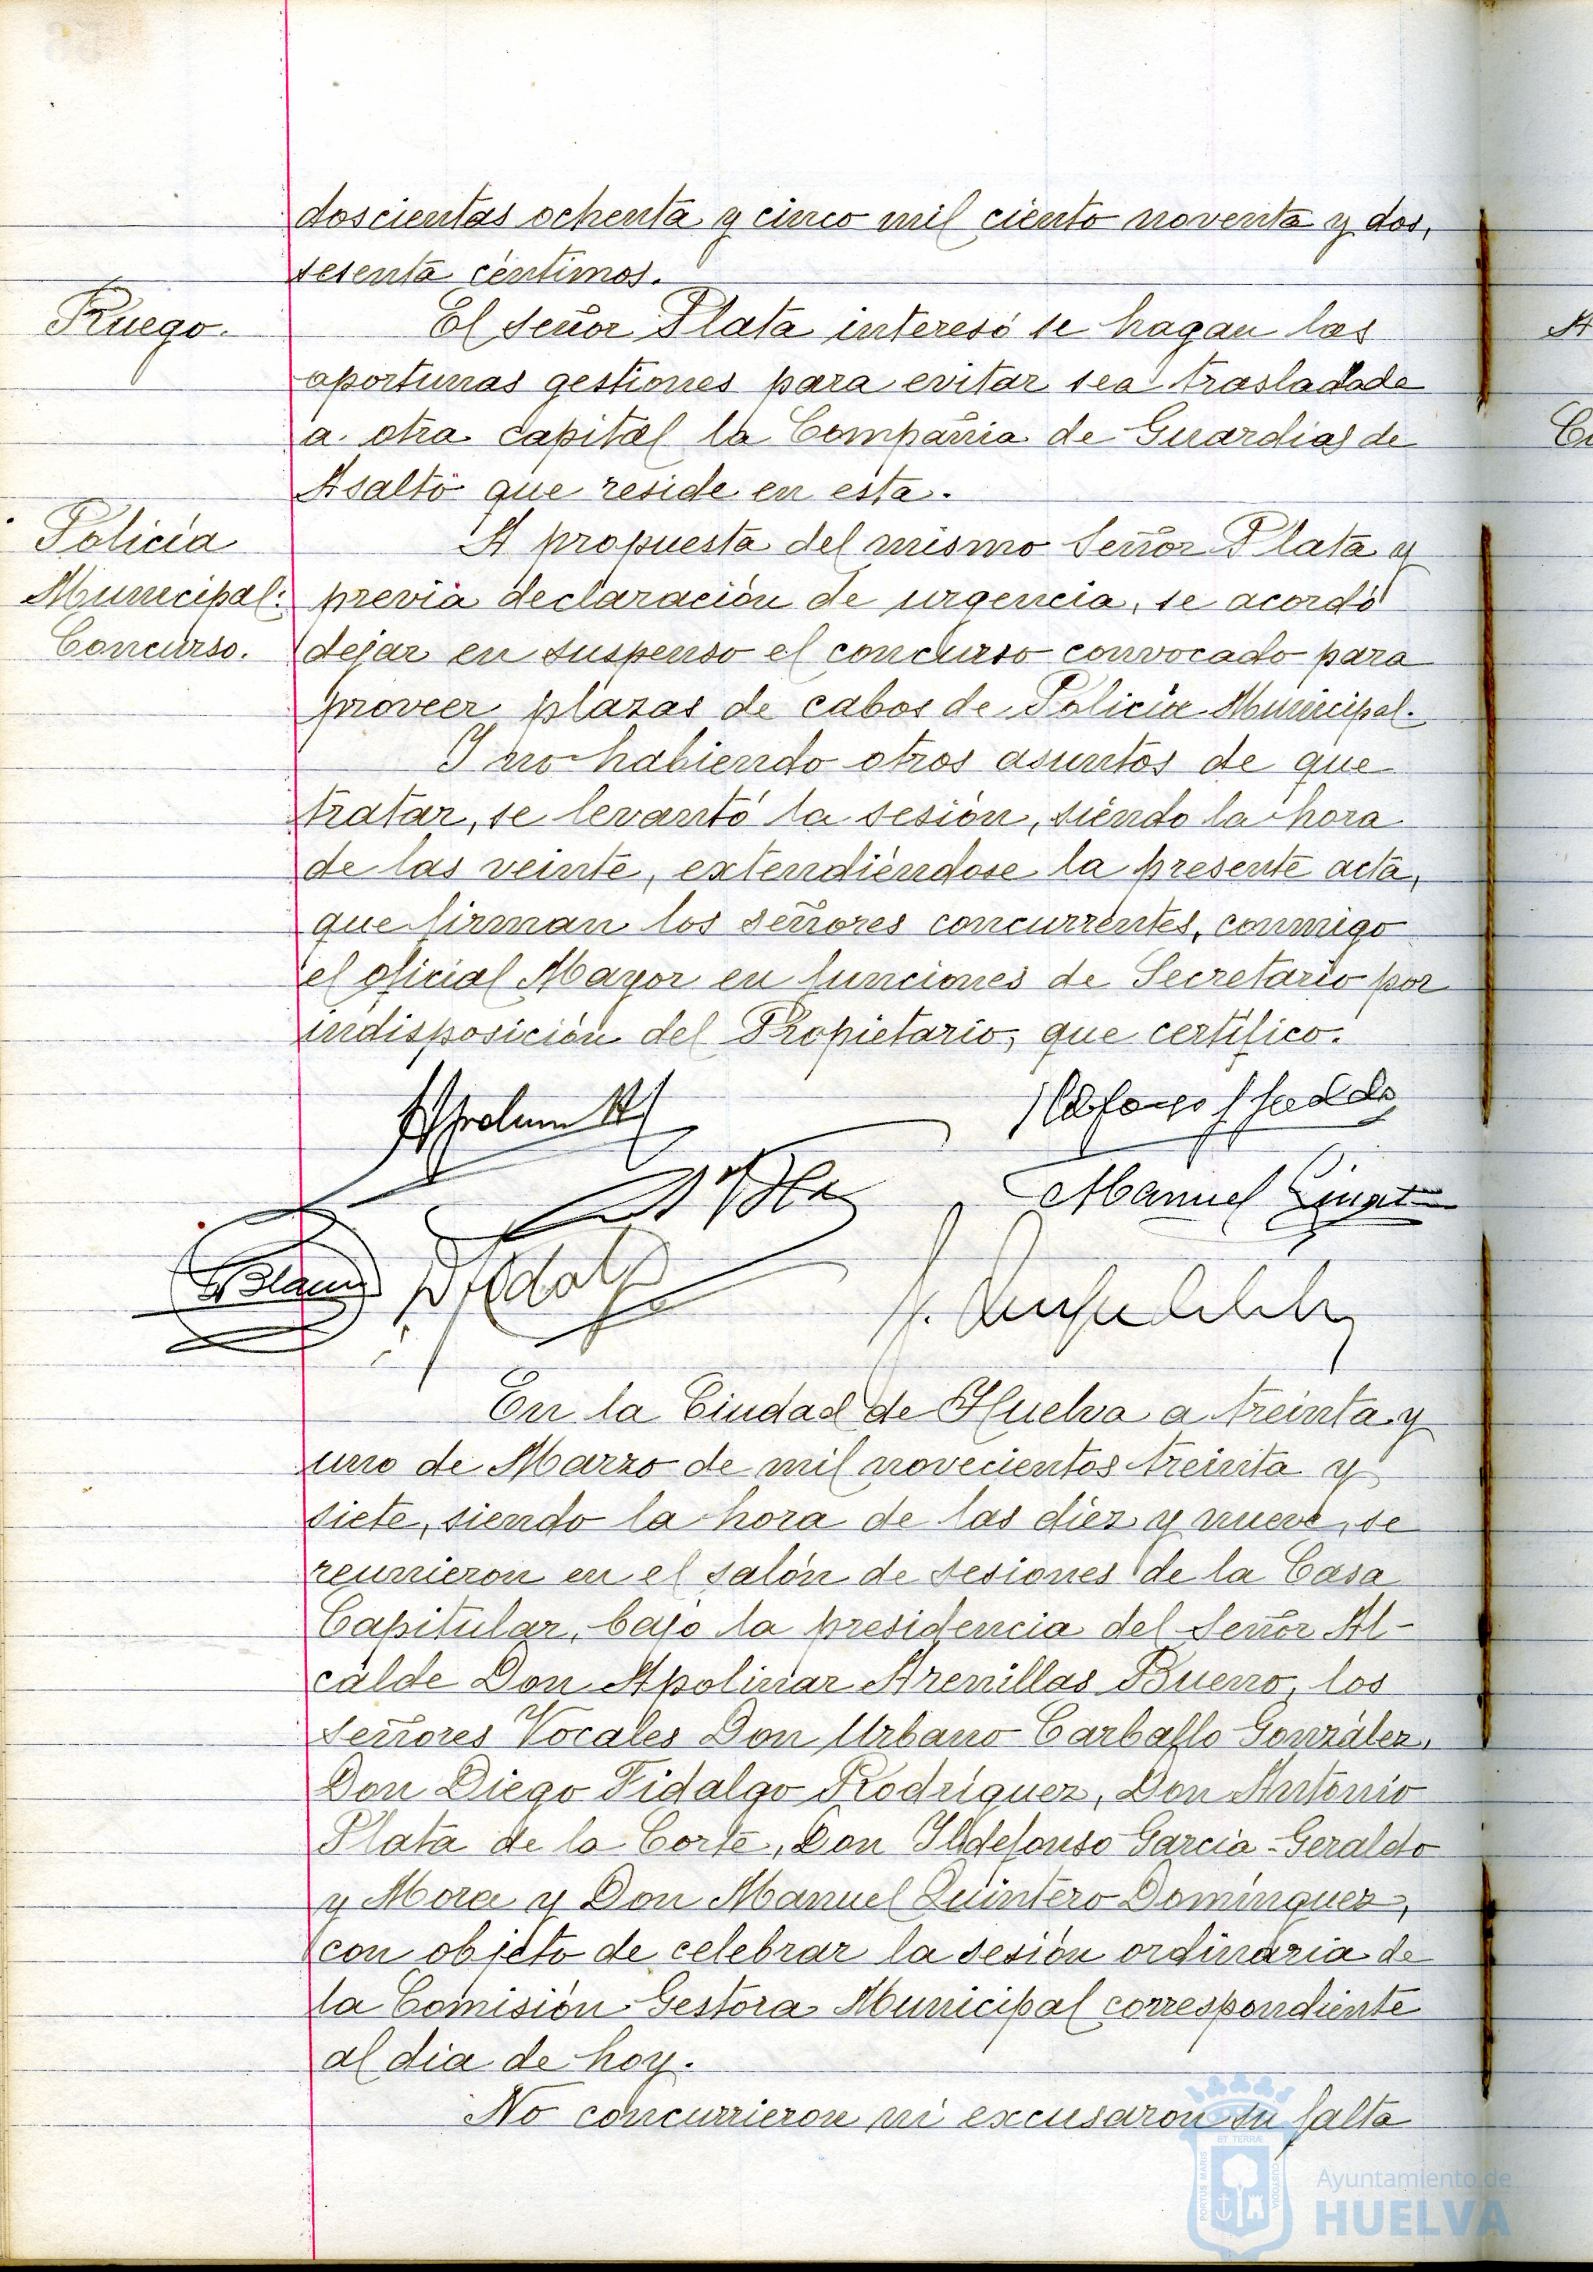 doscientas ochenta y cinco mil ciento noventa y dos,
sesenta céntimos.
Ruego.
El señor Plata interesó se hagan las
oportunas gestiones para evitar sea trasladada
a otra capital la Compañia de Guardias de
Asalto que reside en esta.
Policía
Municipal:
Concurso.
A propuesta del mismo Señor Plata y
previa declaración de urgencia, se acordó
dejar en suspenso el concurso convocado para
proveer plazas de cabos de Policía Municipal.
Y no habiendo otros asuntos de que
tratar, se levantó la sesión, siéndo la hora
de las veinte, extendiéndose la presente acta,
que firman los señores concurrentes, conmigo
el oficial Mayor en funciones de Secretario por
indisposición del Propietario, que certifico.
Manuel
Blanco
En la Ciudad de Huelva a treinta y
uno de Marzo de mil novecientos treinta y
siete, siendo la hora de las diez y nueve, se
reunieron en el salón de sesiones de la Casa
Capitular, bajo la presidencia del Señor Al-
calde Don Apolinar Arenillas Bueno, los
señores Vocales Don Urbano Carballo González,
Don Diego Fidalgo Rodríguez, Don Antonio
Plata de la Corte, Don Ildefonso García-Geraldo
y Mora y Don Manuel Quintero Domínguez,
con objeto de celebrar la sesión ordinaria de
la Comisión Gestora Municipal correspondiente
al dia de hoy.
No concurrieron ni excusaron su falta
PORTUS MARIS ET TERRÆ CUSTODIA
Ayuntamiento de
HUELVA